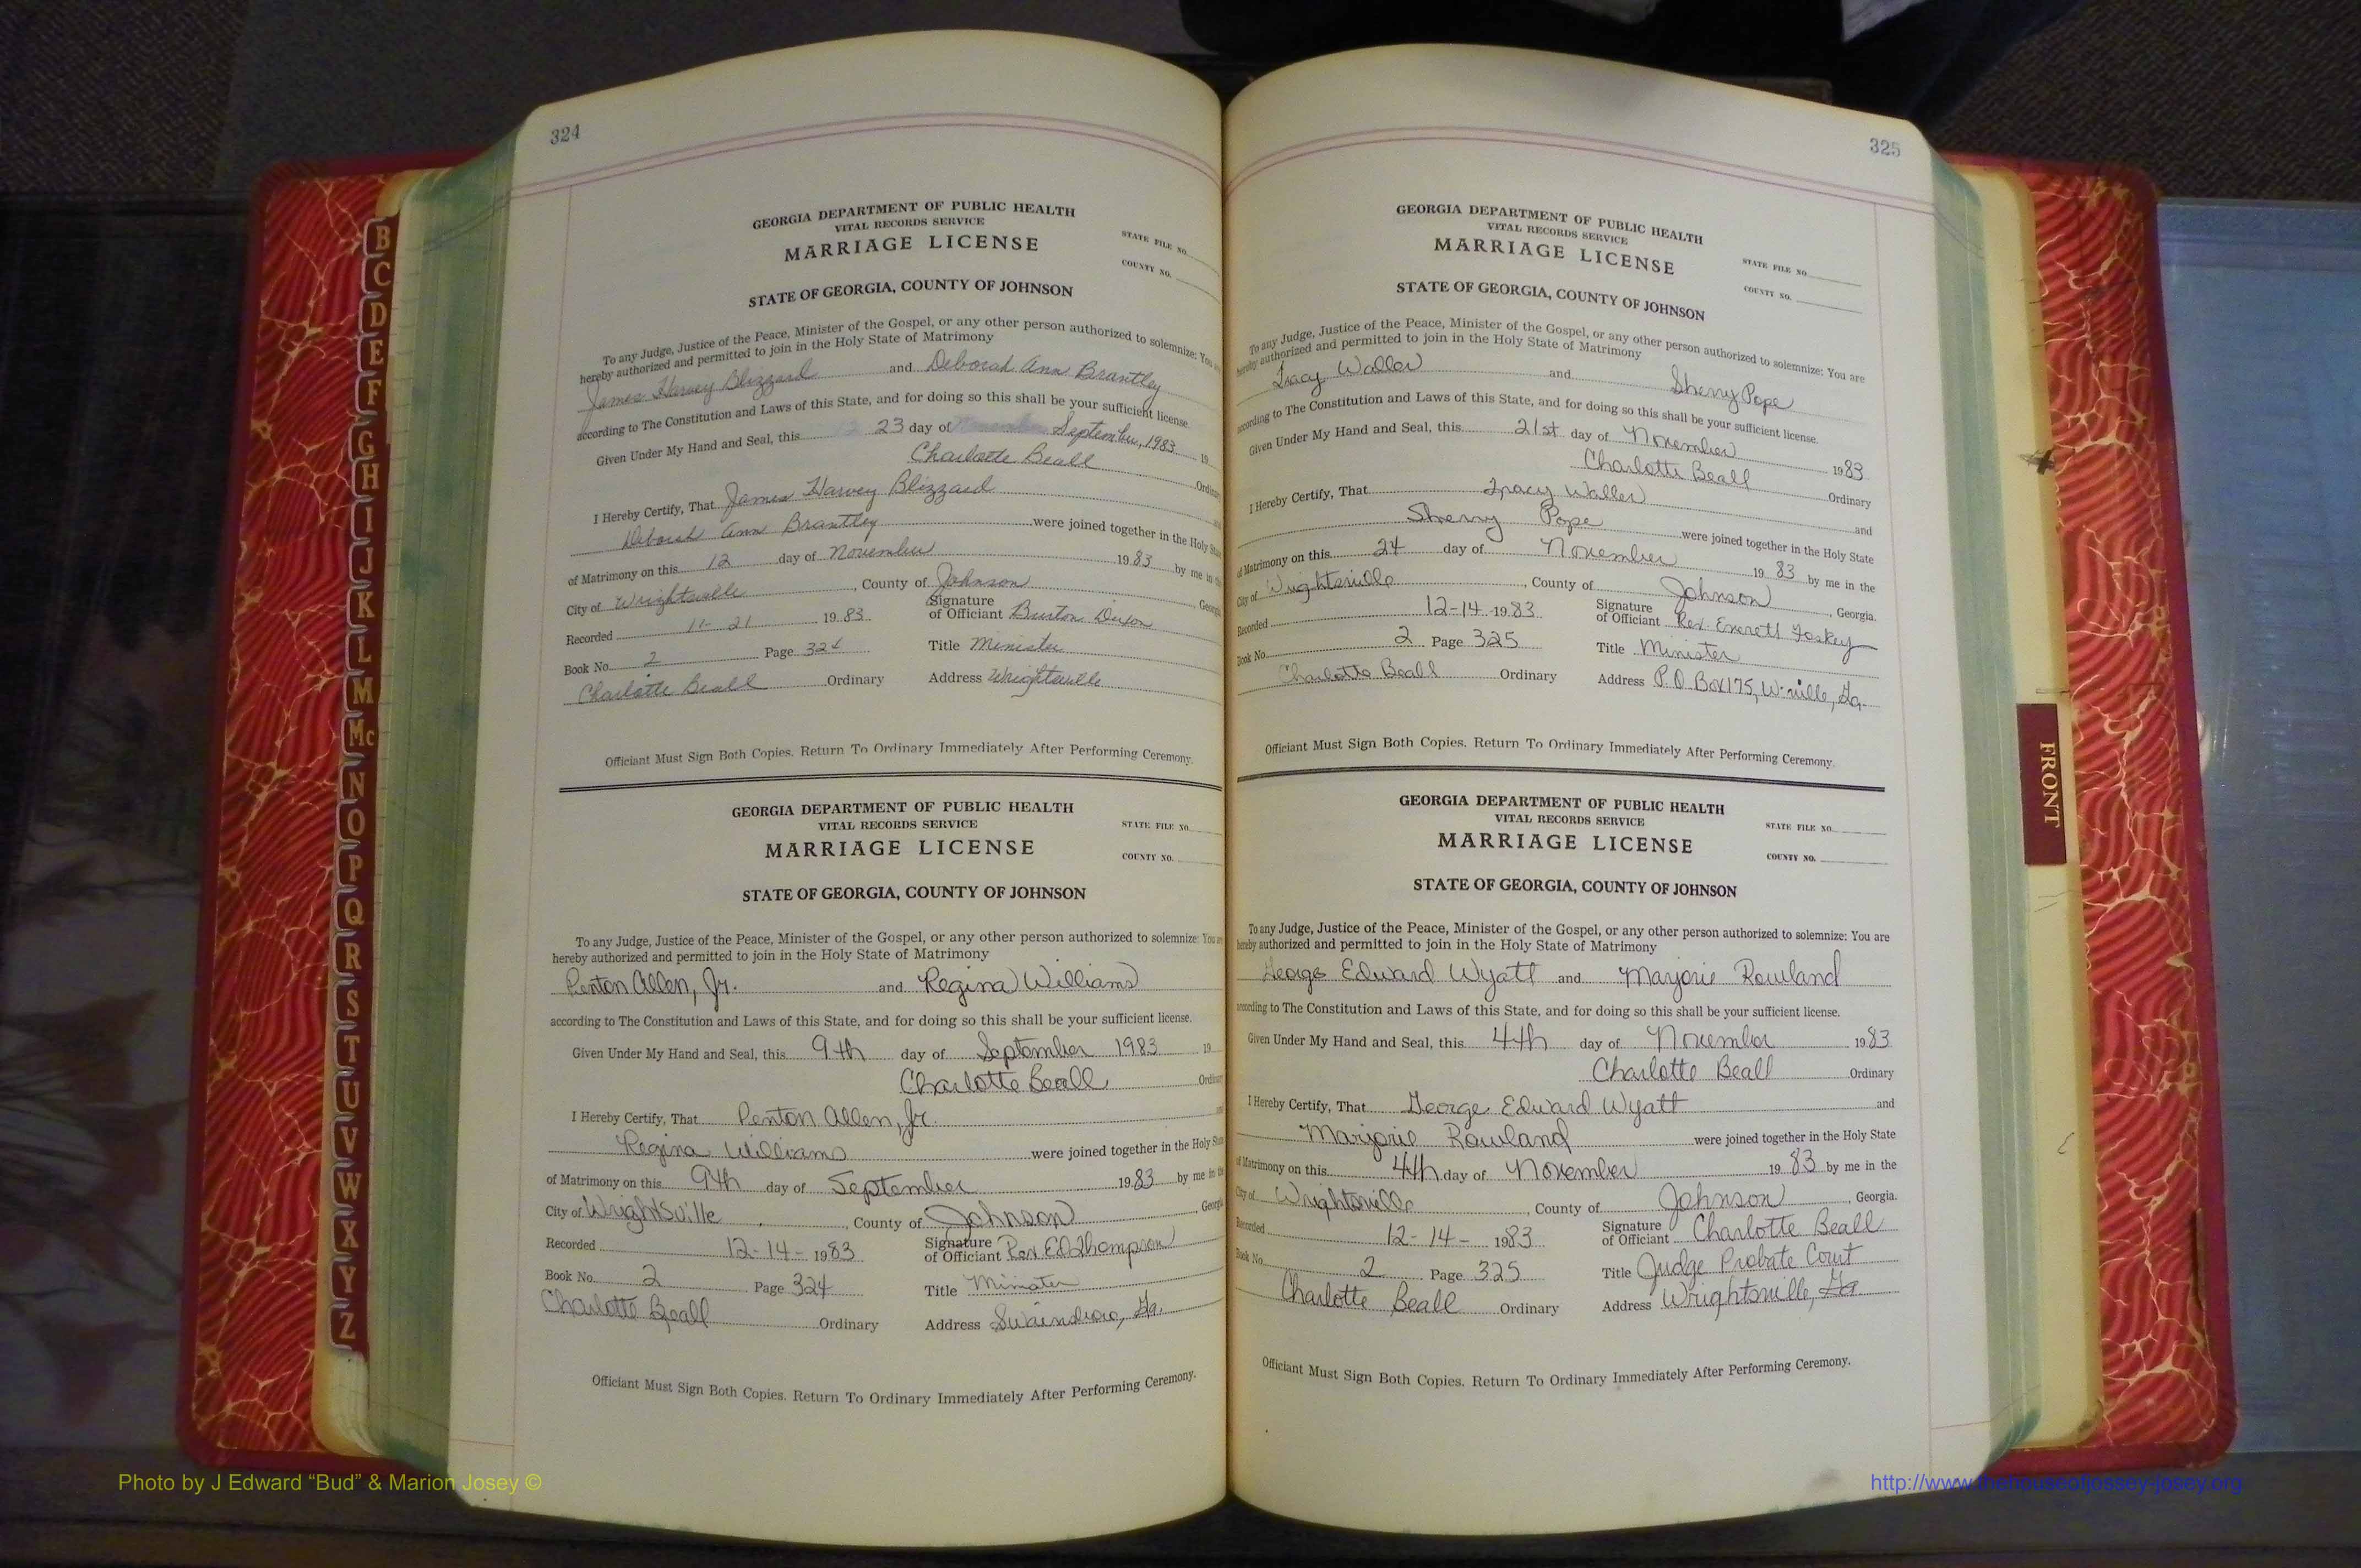 324
GEORGIA DEPARTMENT OF PUBLIC HEALTH
VITAL RECORDS SERVICE
MARRIAGE LICENSE
STATE FILE NO.
COUNTY NO.
STATE OF GEORGIA, COUNTY OF JOHNSON
To any Judge, Justice of the Peace, Minister of the Gospel, or any other person authorized to solemnize: You
hereby authorized and permitted to join in the Holy State of Matrimony
James Harvey Blizzard and Deborah Ann Brantley
according to The Constitution and Laws of this State, and for doing so this shall be your sufficient license.
Given Under My Hand and Seal, this 23 day of September, 1983 19
Charlotte Beall Ordinary
I Hereby Certify, That James Harvey Blizzard
Deborah Ann Brantley were joined together in the Holy State
of Matrimony on this 12 day of November 1983 by me in the
City of Wrightsville, County of Johnson, Georgia
Recorded 11-21 1983 Signature of Officiant Burton Dixon
Book No. 2 Page 324 Title Minister
Charlotte Beall Ordinary Address Wrightsville
Officiant Must Sign Both Copies. Return To Ordinary Immediately After Performing Ceremony.
GEORGIA DEPARTMENT OF PUBLIC HEALTH
VITAL RECORDS SERVICE
MARRIAGE LICENSE
STATE FILE NO.
COUNTY NO.
STATE OF GEORGIA, COUNTY OF JOHNSON
To any Judge, Justice of the Peace, Minister of the Gospel, or any other person authorized to solemnize: You
hereby authorized and permitted to join in the Holy State of Matrimony
Penton Allen, Jr. and Regina Williams
according to The Constitution and Laws of this State, and for doing so this shall be your sufficient license.
Given Under My Hand and Seal, this 9th day of September 1983 19
Charlotte Beall Ordinary
I Hereby Certify, That Penton Allen, Jr. and
Regina Williams were joined together in the Holy State
of Matrimony on this 9th day of September 1983 by me in the
City of Wrightsville, County of Johnson, Georgia
Recorded 12-14-1983 Signature of Officiant Rev. Ed Thompson
Book No. 2 Page 324 Title Minister
Charlotte Beall Ordinary Address Swainsboro, Ga.
Officiant Must Sign Both Copies. Return To Ordinary Immediately After Performing Ceremony.
325
GEORGIA DEPARTMENT OF PUBLIC HEALTH
VITAL RECORDS SERVICE
MARRIAGE LICENSE
STATE FILE NO.
COUNTY NO.
STATE OF GEORGIA, COUNTY OF JOHNSON
To any Judge, Justice of the Peace, Minister of the Gospel, or any other person authorized to solemnize: You are
hereby authorized and permitted to join in the Holy State of Matrimony
Tracy Waller and Sherry Pope
according to The Constitution and Laws of this State, and for doing so this shall be your sufficient license.
Given Under My Hand and Seal, this 21st day of November 1983
Charlotte Beall Ordinary
I Hereby Certify, That Tracy Waller and
Sherry Pope were joined together in the Holy State
of Matrimony on this 24 day of November 1983 by me in the
City of Wrightsville, County of Johnson, Georgia.
Recorded 12-14-1983 Signature of Officiant Rev. Everett Foskey
Book No. 2 Page 325 Title Minister
Charlotte Beall Ordinary Address P.O. Box 175, W-ville, Ga.
Officiant Must Sign Both Copies. Return To Ordinary Immediately After Performing Ceremony.
GEORGIA DEPARTMENT OF PUBLIC HEALTH
VITAL RECORDS SERVICE
MARRIAGE LICENSE
STATE FILE NO.
COUNTY NO.
STATE OF GEORGIA, COUNTY OF JOHNSON
To any Judge, Justice of the Peace, Minister of the Gospel, or any other person authorized to solemnize: You are
hereby authorized and permitted to join in the Holy State of Matrimony
George Edward Wyatt and Marjorie Rowland
according to The Constitution and Laws of this State, and for doing so this shall be your sufficient license.
Given Under My Hand and Seal, this 4th day of November 1983
Charlotte Beall Ordinary
I Hereby Certify, That George Edward Wyatt and
Marjorie Rowland were joined together in the Holy State
of Matrimony on this 4th day of November 1983 by me in the
City of Wrightsville, County of Johnson, Georgia.
Recorded 12-14-1983 Signature of Officiant Charlotte Beall
Book No. 2 Page 325 Title Judge Probate Court
Charlotte Beall Ordinary Address Wrightsville, Ga
Officiant Must Sign Both Copies. Return To Ordinary Immediately After Performing Ceremony.
B
C
D
E
F
G
H
I
J
K
L
M
Mc
N
O
P
Q
R
S
T
U
V
W
X
Y
Z
FRONT
Photo by J Edward “Bud” & Marion Josey ©
http://www.thehouseofjossey-josey.org